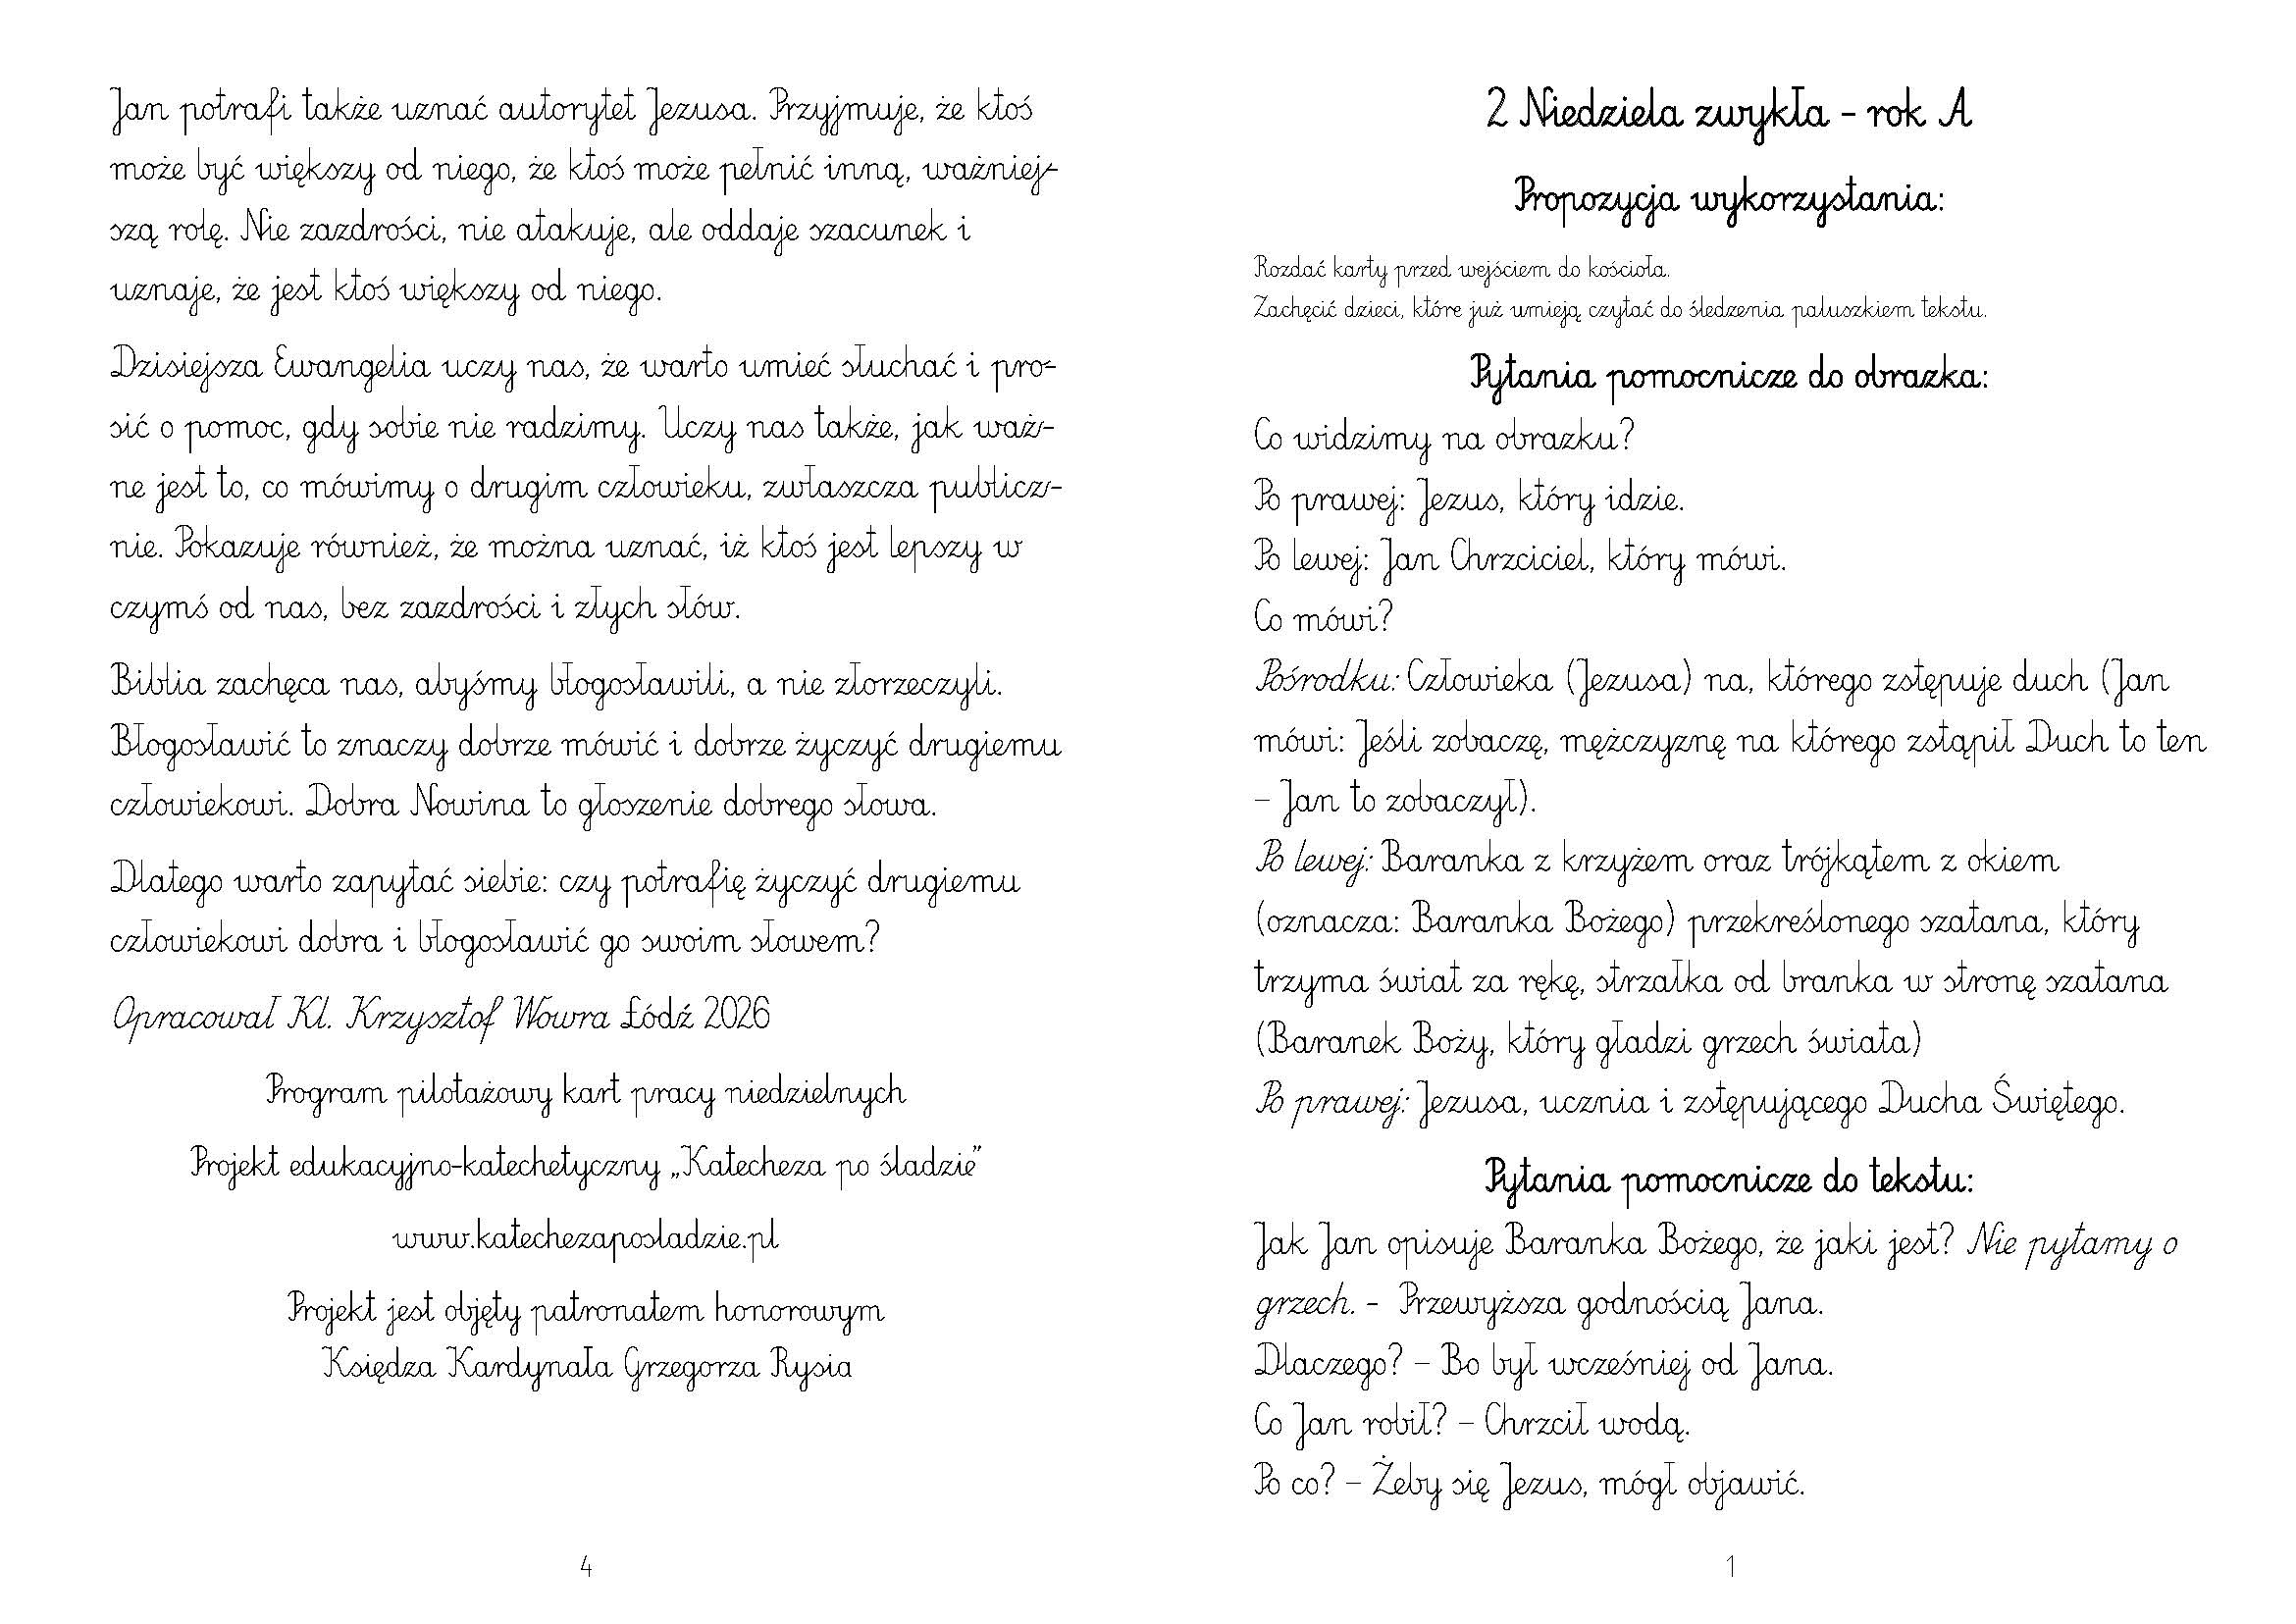 Jan potrafi także uznać autorytet Jezusa. Przyjmuje, że ktoś
może być większy od niego, że ktoś może pełnić inną, ważniej-
szą rolę. Nie zazdrości, nie atakuje, ale oddaje szacunek i
uznaje, że jest ktoś większy od niego.
Dzisiejsza Ewangelia uczy nas, że warto umieć słuchać i pro-
sić o pomoc, gdy sobie nie radzimy. Uczy nas także, jak waż-
ne jest to, co mówimy o drugim człowieku, zwłaszcza publicz-
nie. Pokazuje również, że można uznać, iż ktoś jest lepszy w
czymś od nas, bez zazdrości i złych słów.
Biblia zachęca nas, abyśmy błogosławili, a nie złorzeczyli.
Błogosławić to znaczy dobrze mówić i dobrze życzyć drugiemu
człowiekowi. Dobra Nowina to głoszenie dobrego słowa.
Dlatego warto zapytać siebie: czy potrafię życzyć drugiemu
człowiekowi dobra i błogosławić go swoim słowem?
Opracował Kl. Krzysztof Wowra Łódź 2026
Program pilotażowy kart pracy niedzielnych
Projekt edukacyjno-katechetyczny „Katecheza po śladzie”
www.katechezaposladzie.pl
Projekt jest objęty patronatem honorowym
Księdza Kardynała Grzegorza Rysia
4
2 Niedziela zwykła - rok A
Propozycja wykorzystania:
Rozdać karty przed wejściem do kościoła.
Zachęcić dzieci, które już umieją czytać do śledzenia paluszkiem tekstu.
Pytania pomocnicze do obrazka:
Co widzimy na obrazku?
Po prawej: Jezus, który idzie.
Po lewej: Jan Chrzciciel, który mówi.
Co mówi?
Pośrodku: Człowieka (Jezusa) na, którego zstępuje duch (Jan
mówi: Jeśli zobaczę, mężczyznę na którego zstąpił Duch to ten
– Jan to zobaczył).
Po lewej: Baranka z krzyżem oraz trójkątem z okiem
(oznacza: Baranka Bożego) przekreślonego szatana, który
trzyma świat za rękę, strzałka od branka w stronę szatana
(Baranek Boży, który gładzi grzech świata)
Po prawej: Jezusa, ucznia i zstępującego Ducha Świętego.
Pytania pomocnicze do tekstu:
Jak Jan opisuje Baranka Bożego, że jaki jest? Nie pytamy o
grzech. - Przewyższa godnością Jana.
Dlaczego? – Bo był wcześniej od Jana.
Co Jan robił? – Chrzcił wodą.
Po co? – Żeby się Jezus, mógł objawić.
1